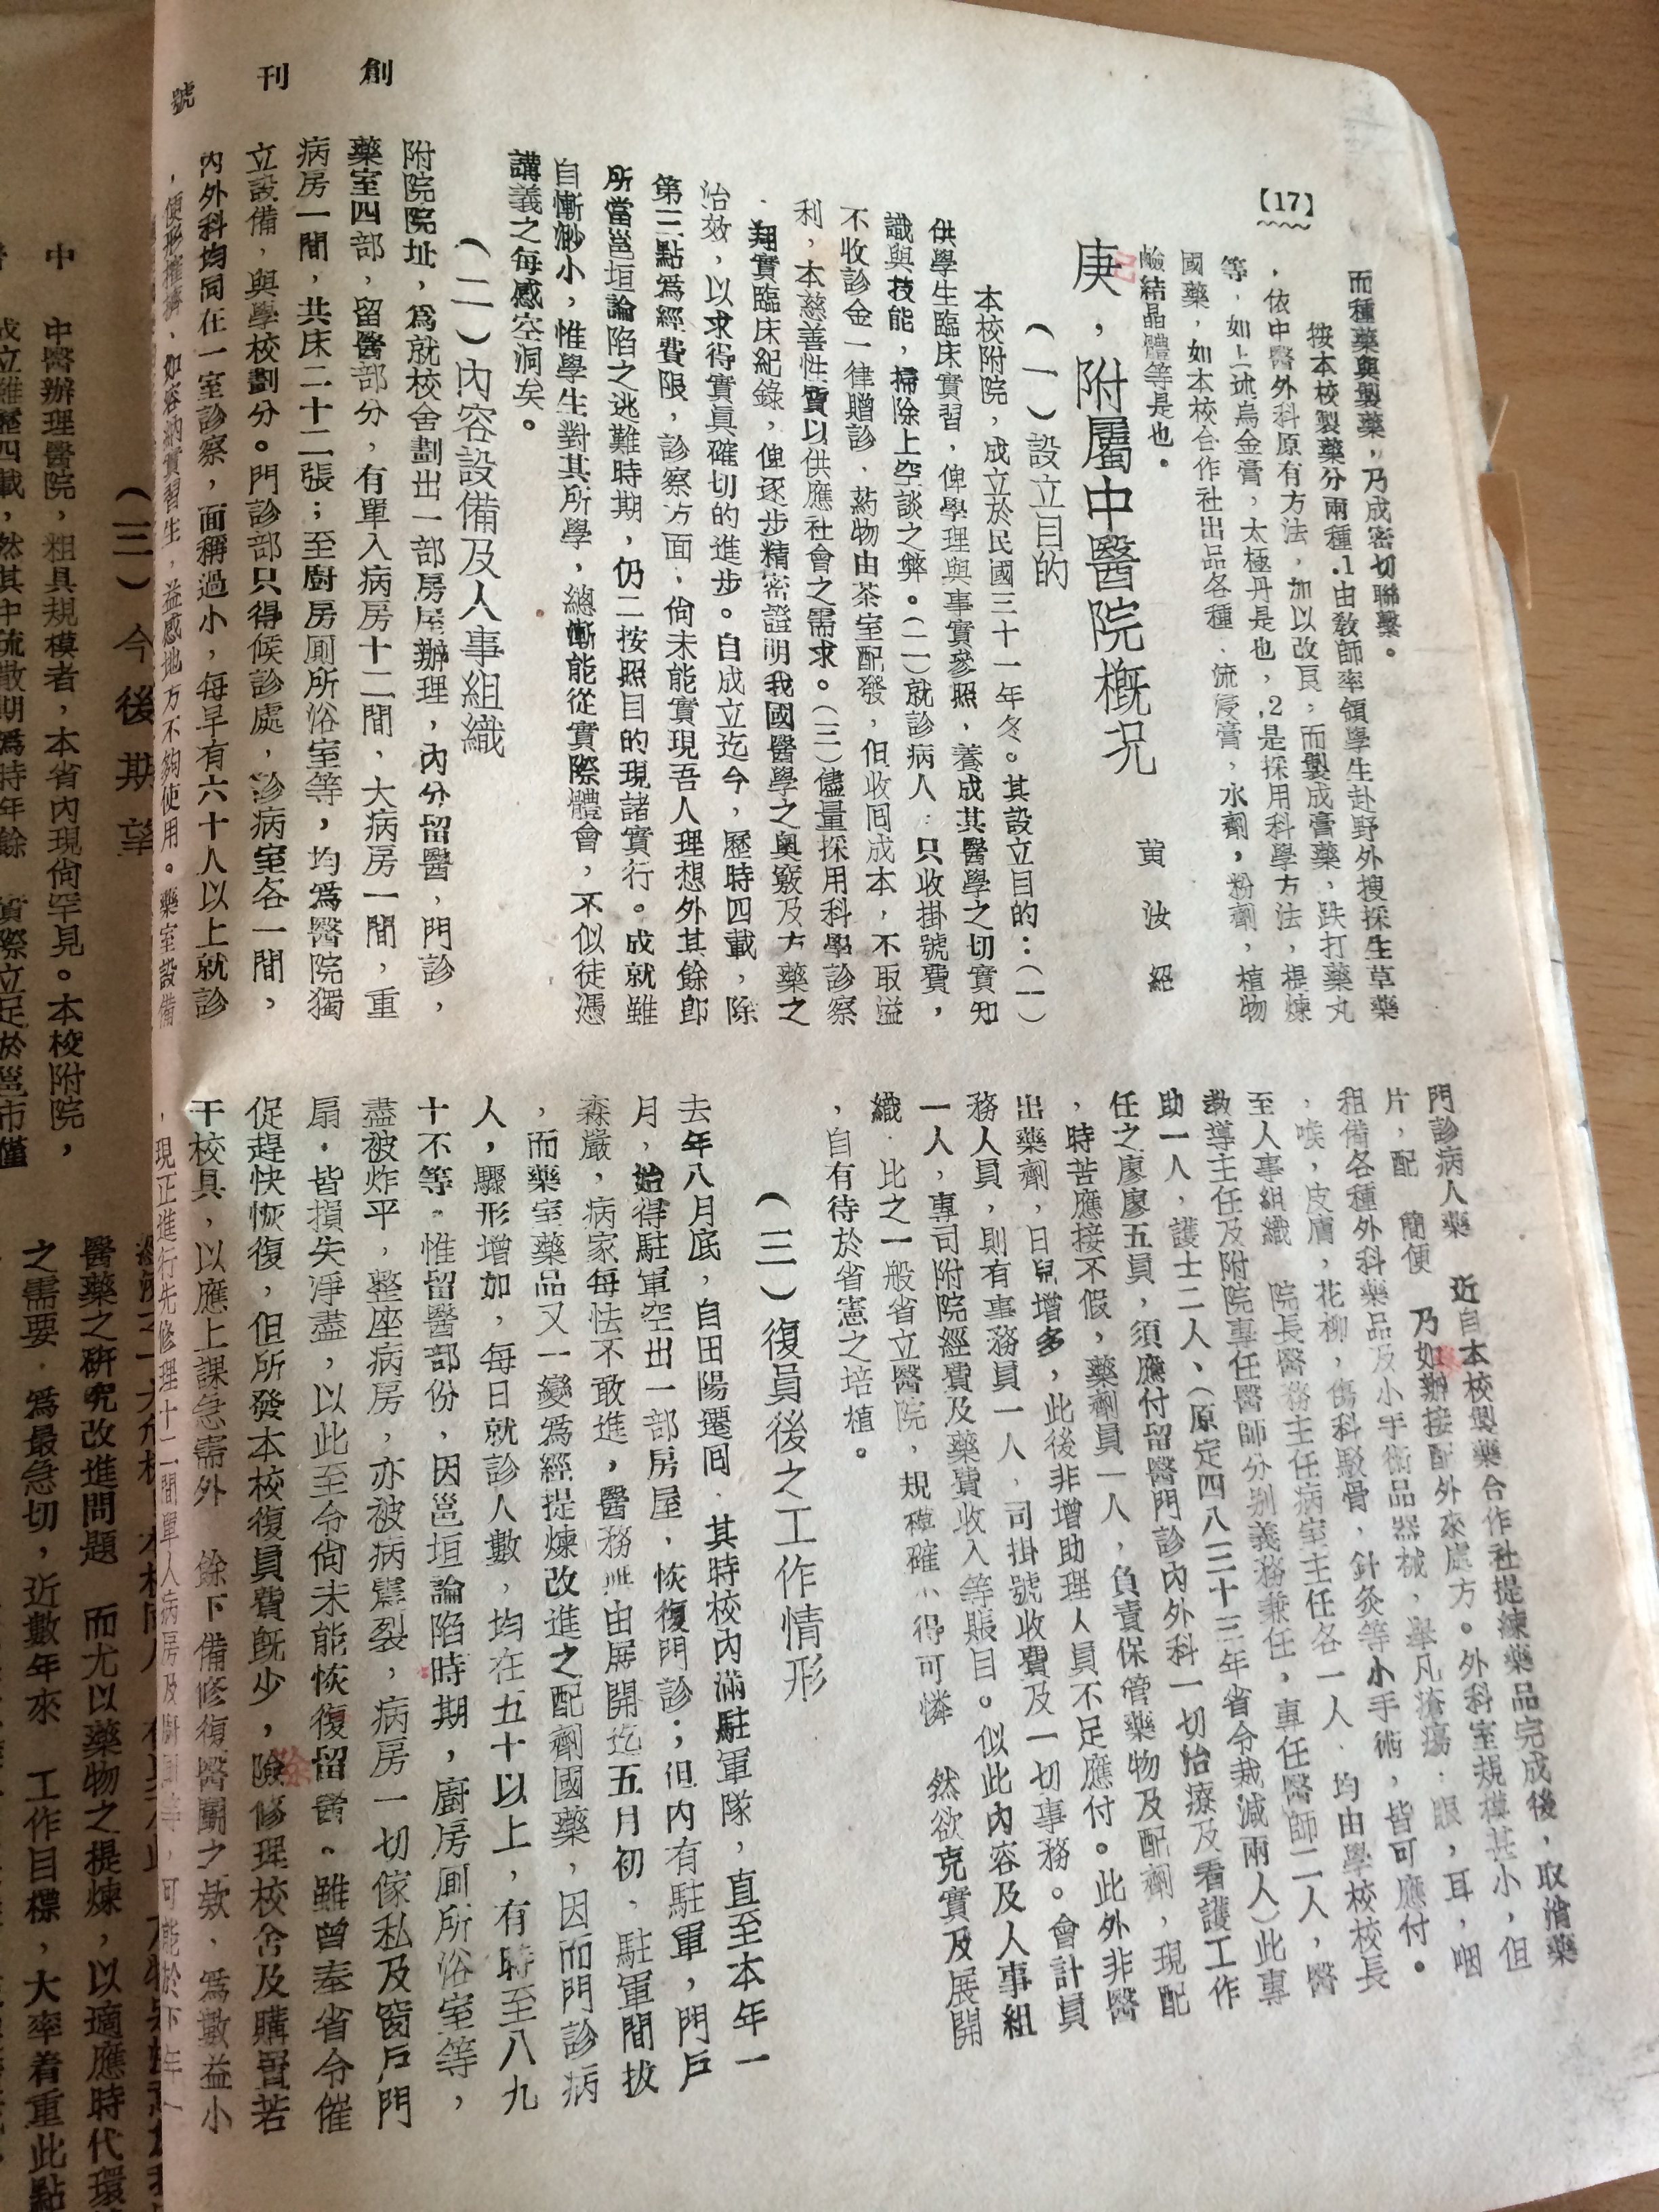 創刊號
【17】
而種藥與製藥，乃成密切聯繫。
按本校製藥分兩種.1由教師率領學生赴野外搜採生草藥
，依中醫外科原有方法，加以改良，而製成膏藥，跌打藥丸
等，如上述烏金膏，太極丹是也，2是採用科學方法，提煉
國藥，如本校合作社出品各種．流浸膏，水劑，粉劑，植物
鹼結晶體等是也．
庚，附屬中醫院概況
黃汝紹
（一）設立目的
本校附院，成立於民國三十一年冬。其設立目的：（一）
供學生臨床實習，俾學理與事實參照，養成其醫學之切實知
識與技能，掃除上空談之弊。（二）就診病人．只收掛號費，
不收診金一律贈診．葯物由茶室配發，但收回成本，不取溢
利，本慈善性質以供應社會之需求。（三）儘量採用科學診察
．翔實臨床紀錄，俾逐步精密證明我國醫學之奧竅及方藥之
治效，以求得實眞確切的進步。自成立迄今，歷時四載，除
第三點爲經費限，診察方面，倘未能實現吾人理想外其餘卽
所當邕垣論陷之逃難時期，仍二按照目的現諸實行。成就雖
自慚渺小，惟學生對其所學，總慚能從實際體會，不似徒憑
講義之每感空洞矣。
（二）內容設備及人事組織
附院院址，爲就校舍劃出一部房屋辦理，內分留醫，門診，
藥室四部，留醫部分，有單入病房十二間，大病房一間，重
病房一間，共床二十二張；至廚房厠所浴室等，均爲醫院獨
立設備，與學校劃分。門診部只得候診處，診病室各一間，
內外科均同在一室診察，面稱過小，每早有六十人以上就診
，便形擁擠，如容納實習生，益感地方不夠使用。藥室設備
門診病人藥　近自本校製藥合作社提練藥品完成後，取消藥
片，配　簡便　乃如辦接配外來處方。外科室規模甚小，但
租備各種外科藥品及小手術品器械，舉凡瘡瘍．眼，耳，咽
，喉，皮膚，花柳，傷科駁骨，針灸等小手術，皆可應付。
至人事組織　院長醫務主任病室主任各一人．均由學校校長
教導主任及附院專任醫師分别義務兼任，專任醫師二人，醫
助一人，護士二人、（原定四八三十三年省令裁減兩人）此專
任之廖廖五員，須應付留醫門診內外科一切治療及看護工作
，時苦應接不假，藥劑員一人，負責保管藥物及配劑，現配
出藥劑，日見增多，此後非增助理人員不足應付。此外非醫
務人員，則有事務員一人．司掛號收費及一切事務。會計員
一人，專司附院經費及藥費收入等賬目。似此內容及人事組
織．比之一般省立醫院，規模確小得可憐　然欲克實及展開
，自有待於省憲之培植。
（三）復員後之工作情形
去年八月底，自田陽遷囘．其時校內滿駐軍隊，直至本年一
月，始得駐軍空出一部房屋，恢復門診；但內有駐軍，門戶
森嚴，病家每怯不敢進，醫務無由展開迄五月初．駐軍間拔
，而藥室藥品又一變爲經提煉改進之配劑國藥，因而門診病
人，驟形增加，每日就診人數，均在五十以上，有時至八九
十不等。惟留醫部份，因邕垣論陷時期，廚房厠所浴室等，
盡被炸平，整座病房，亦被病震裂，病房一切傢私及窗戶門
扇．皆損失淨盡，以此至令尙未能恢復留醫。雖曾奉省令催
促趕快恢復，但所發本校復員費旣少，險修理校舍及購置若
干校具，以應上課急需外　餘下備修復醫關之欵．爲數益小
，現正進行先修理十二間單人病房及廚厠等，可能於下年
（三）今後期望
中醫辦理醫院，粗具規模者，本省內現尙罕見。本校附院，
成立雖歷四載，然其中流散期爲時年餘　實際立足於邕市僅
醫藥之研究改進問題　而尤以藥物之提煉，以適應時代環
之需要．爲最急切，近數年來　工作目標，大率着重此點